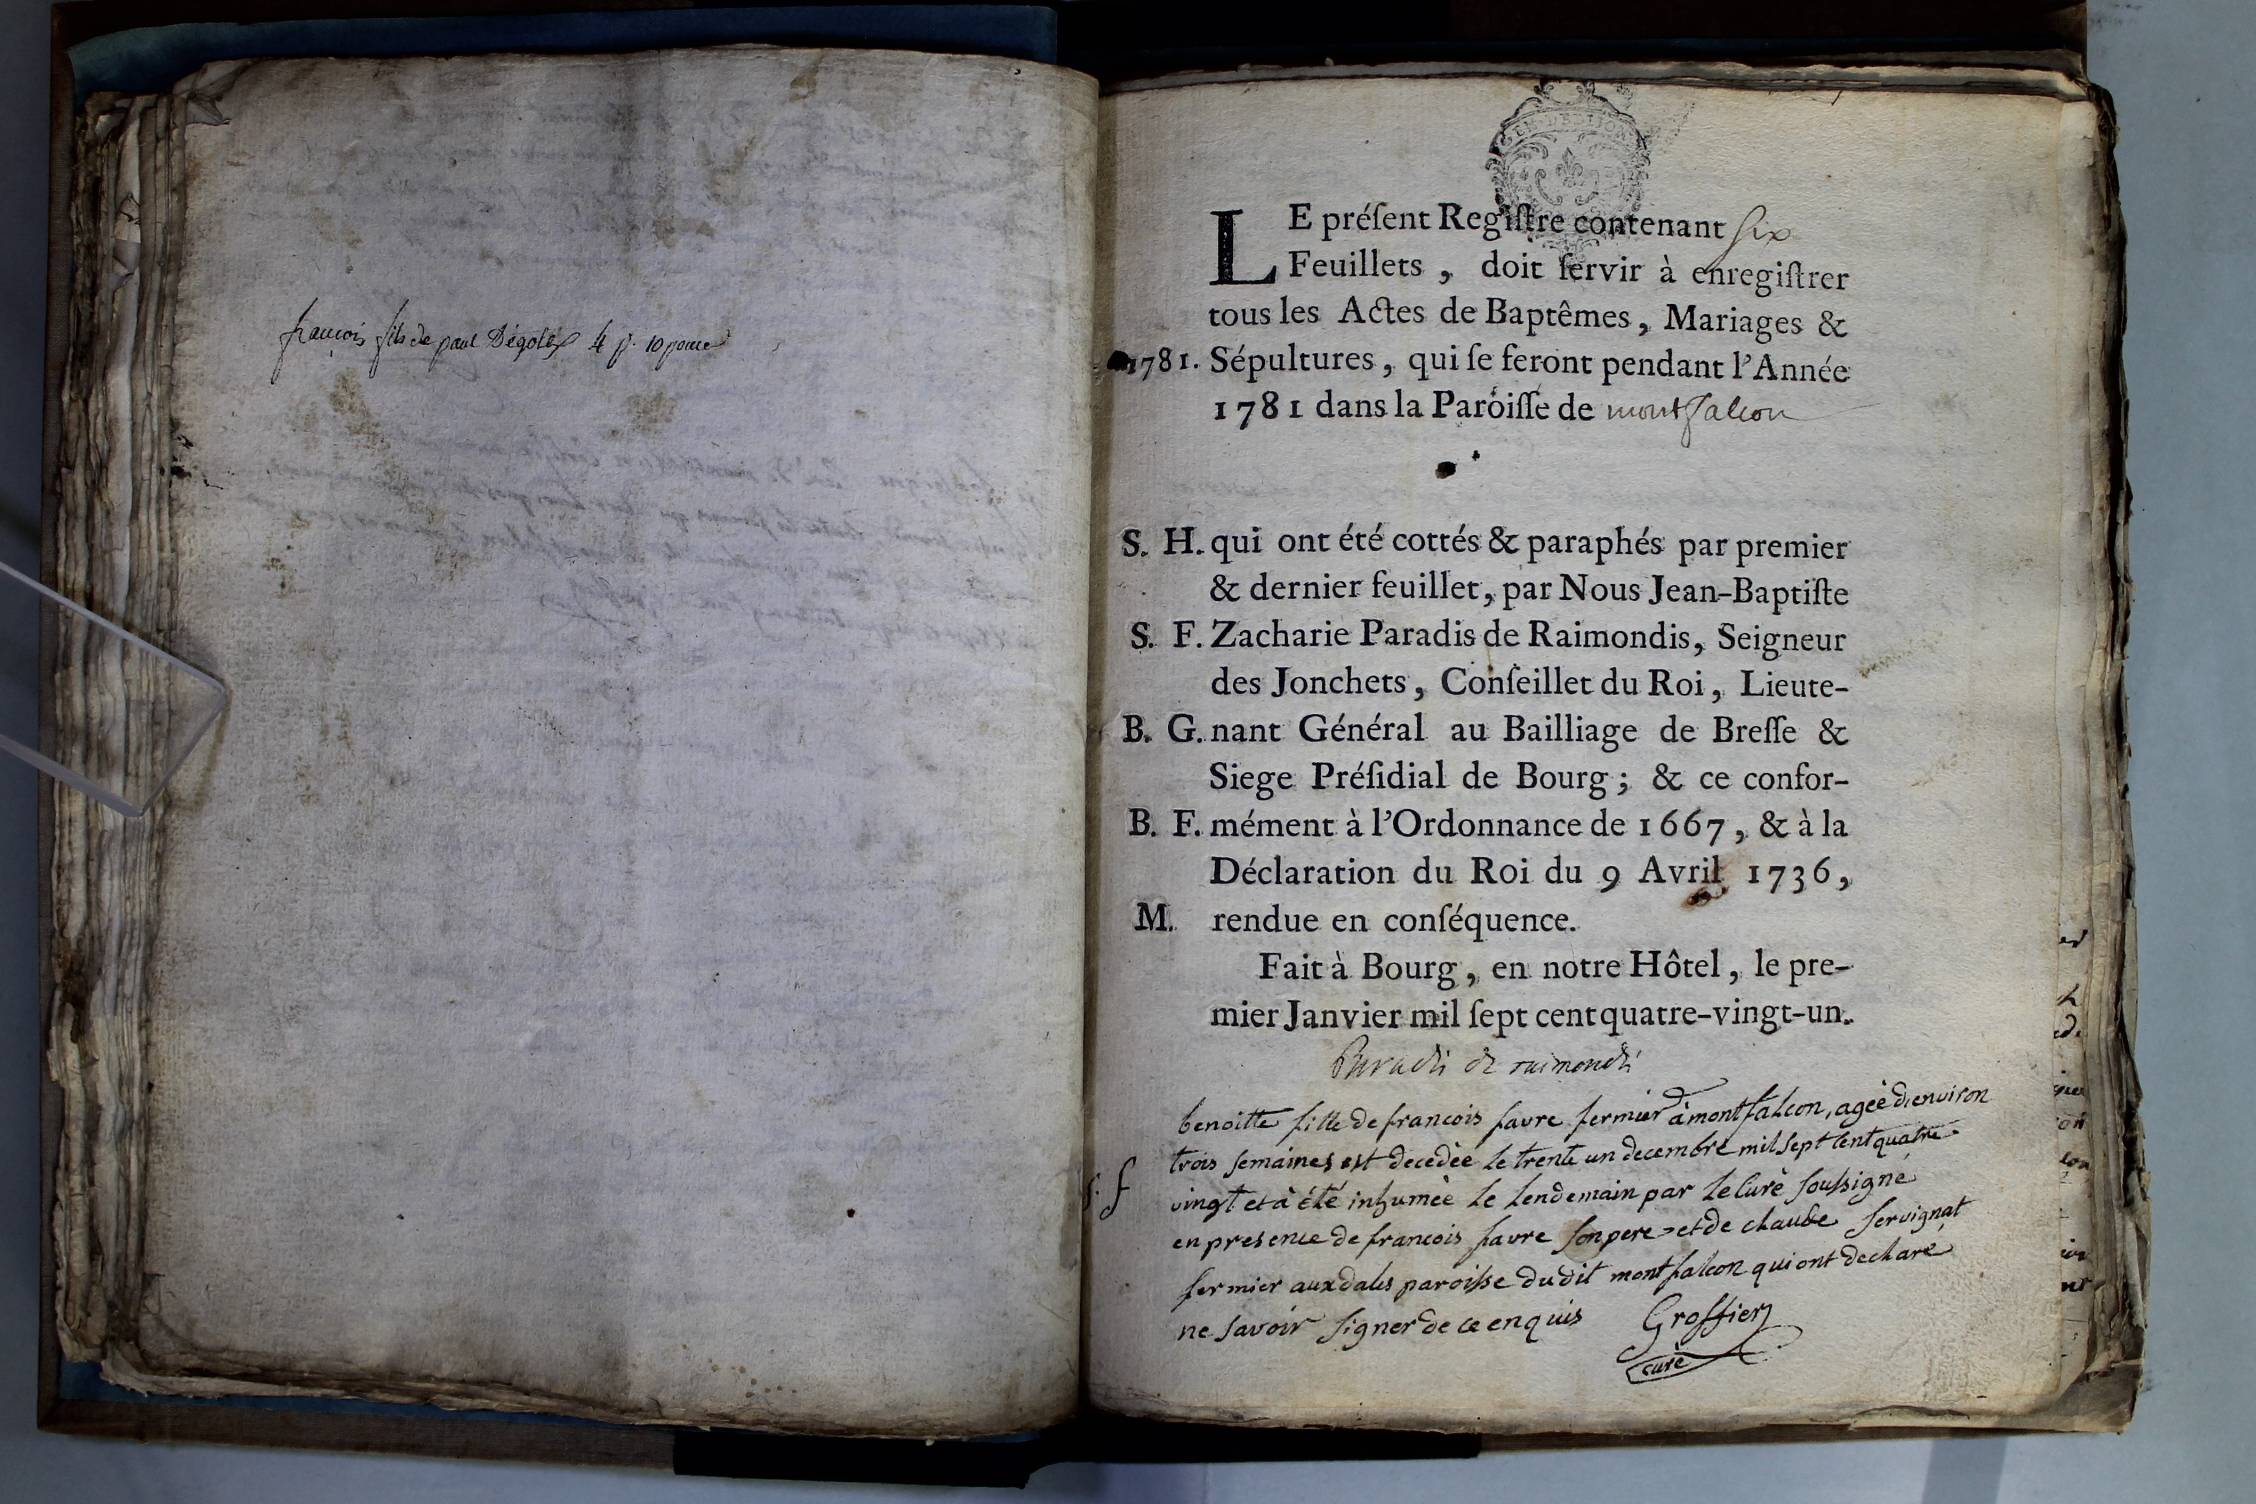 françois fils de paul Dégolet 4 p. 10 pouce
LE préſent Regiſtre contenant six
Feuillets, doit ſervir à enregiſtrer
tous les Actes de Baptêmes, Mariages &
1781. Sépultures, qui ſe feront pendant l'Année
1781 dans la Paroiſſe de montfalcon
S. H. qui ont été cottés & paraphés par premier
& dernier feuillet, par Nous Jean-Baptiſte
S. F. Zacharie Paradis de Raimondis, Seigneur
des Jonchets, Conſeillet du Roi, Lieute-
B. G. nant Général au Bailliage de Breſſe &
Siege Préſidial de Bourg; & ce confor-
B. F. mément à l'Ordonnance de 1667, & à la
Déclaration du Roi du 9 Avril 1736,
M. rendue en conſéquence.
Fait à Bourg, en notre Hôtel, le pre-
mier Janvier mil ſept cent quatre-vingt-un.
Paradis de raimondi
benoitte fille de francois favre fermier à montfalcon, ageè d'environ
trois semaines est decedèe le trente un decembre mil sept cent quatre
S. f vingt et à été inhumèe le lendemain par le Curè soussigné
en presence de francois favre son pere et de claude servignat
fermier aux dales paroisse dudit montfalcon qui ont declarè
ne savoir signer de ce enquis Groffier
curè